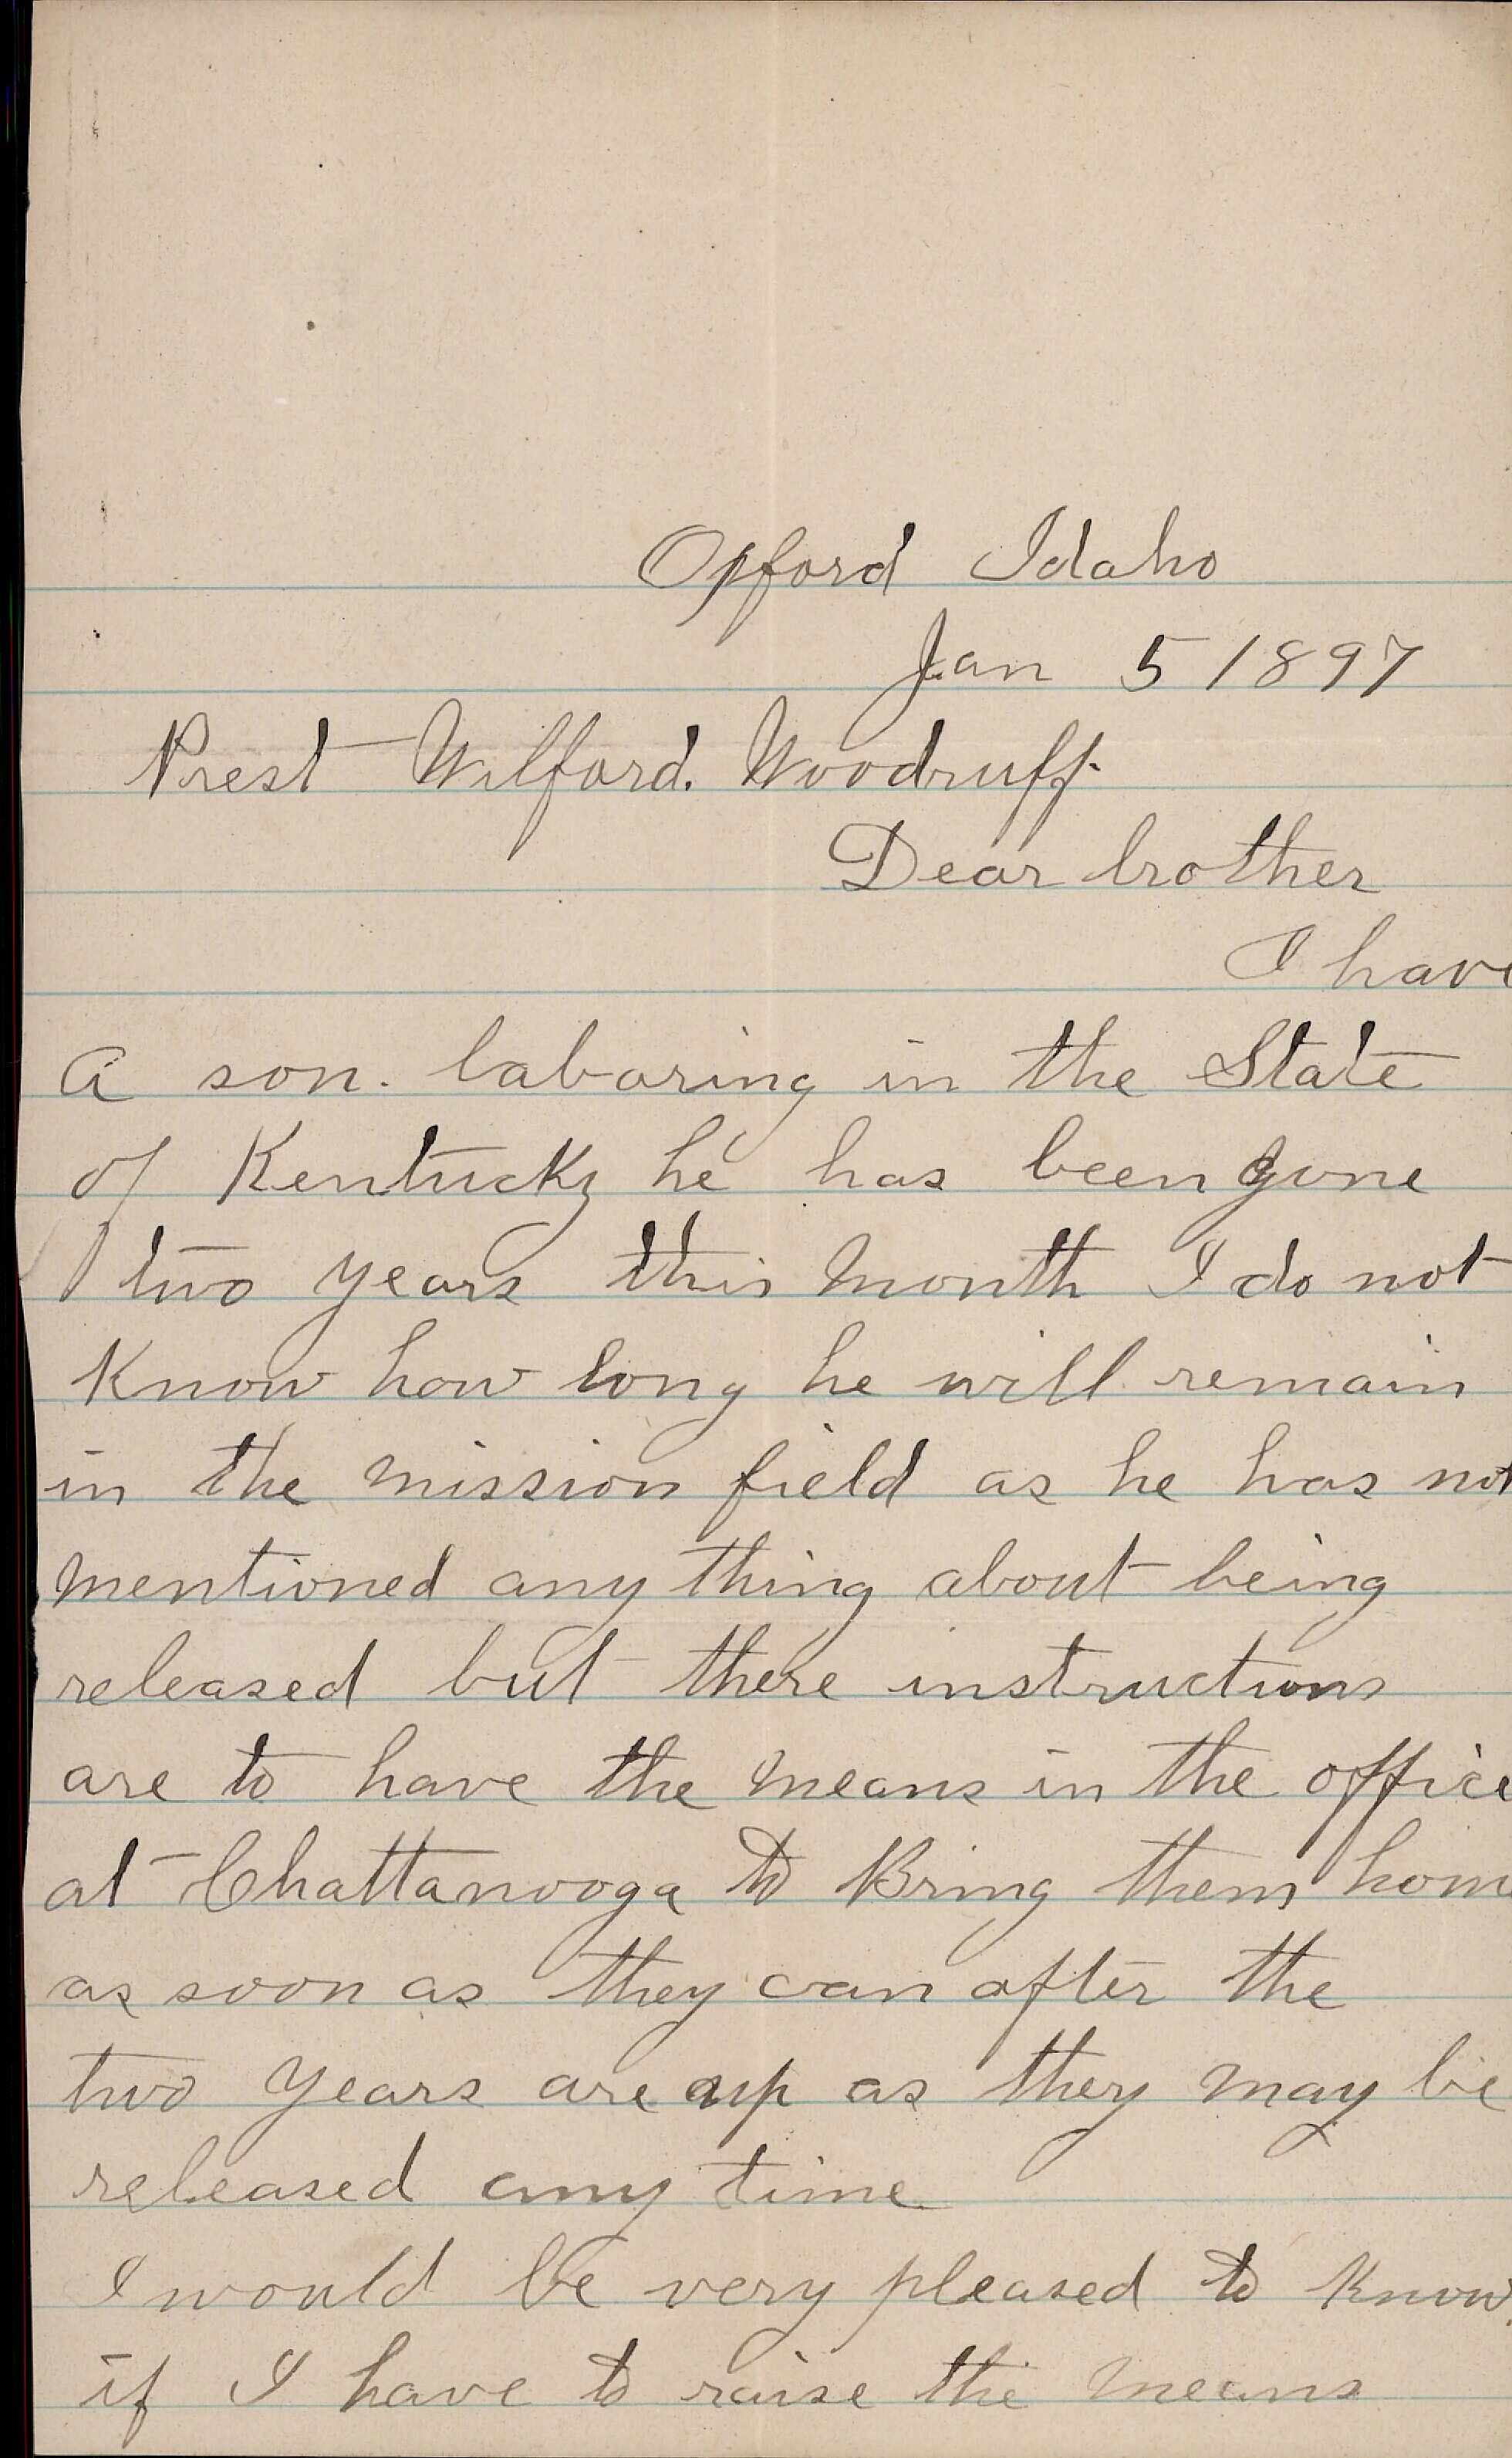 Opford Idaho
Jan 5 1897
Prest Wilford. Woodruff.
Dear brother
I have
a son. laboring in the State
of Kentucky he has been gone
two years this month I do not
Know how long he will remain
in the mission field as he has not
mentioned any thing about being
released but there instructions
are to have the means in the office
at Chattanooga to Bring them hom
as soon as they can after the
two years are up as they may be
released any time
I would be very pleased to know
if I have to raise the means